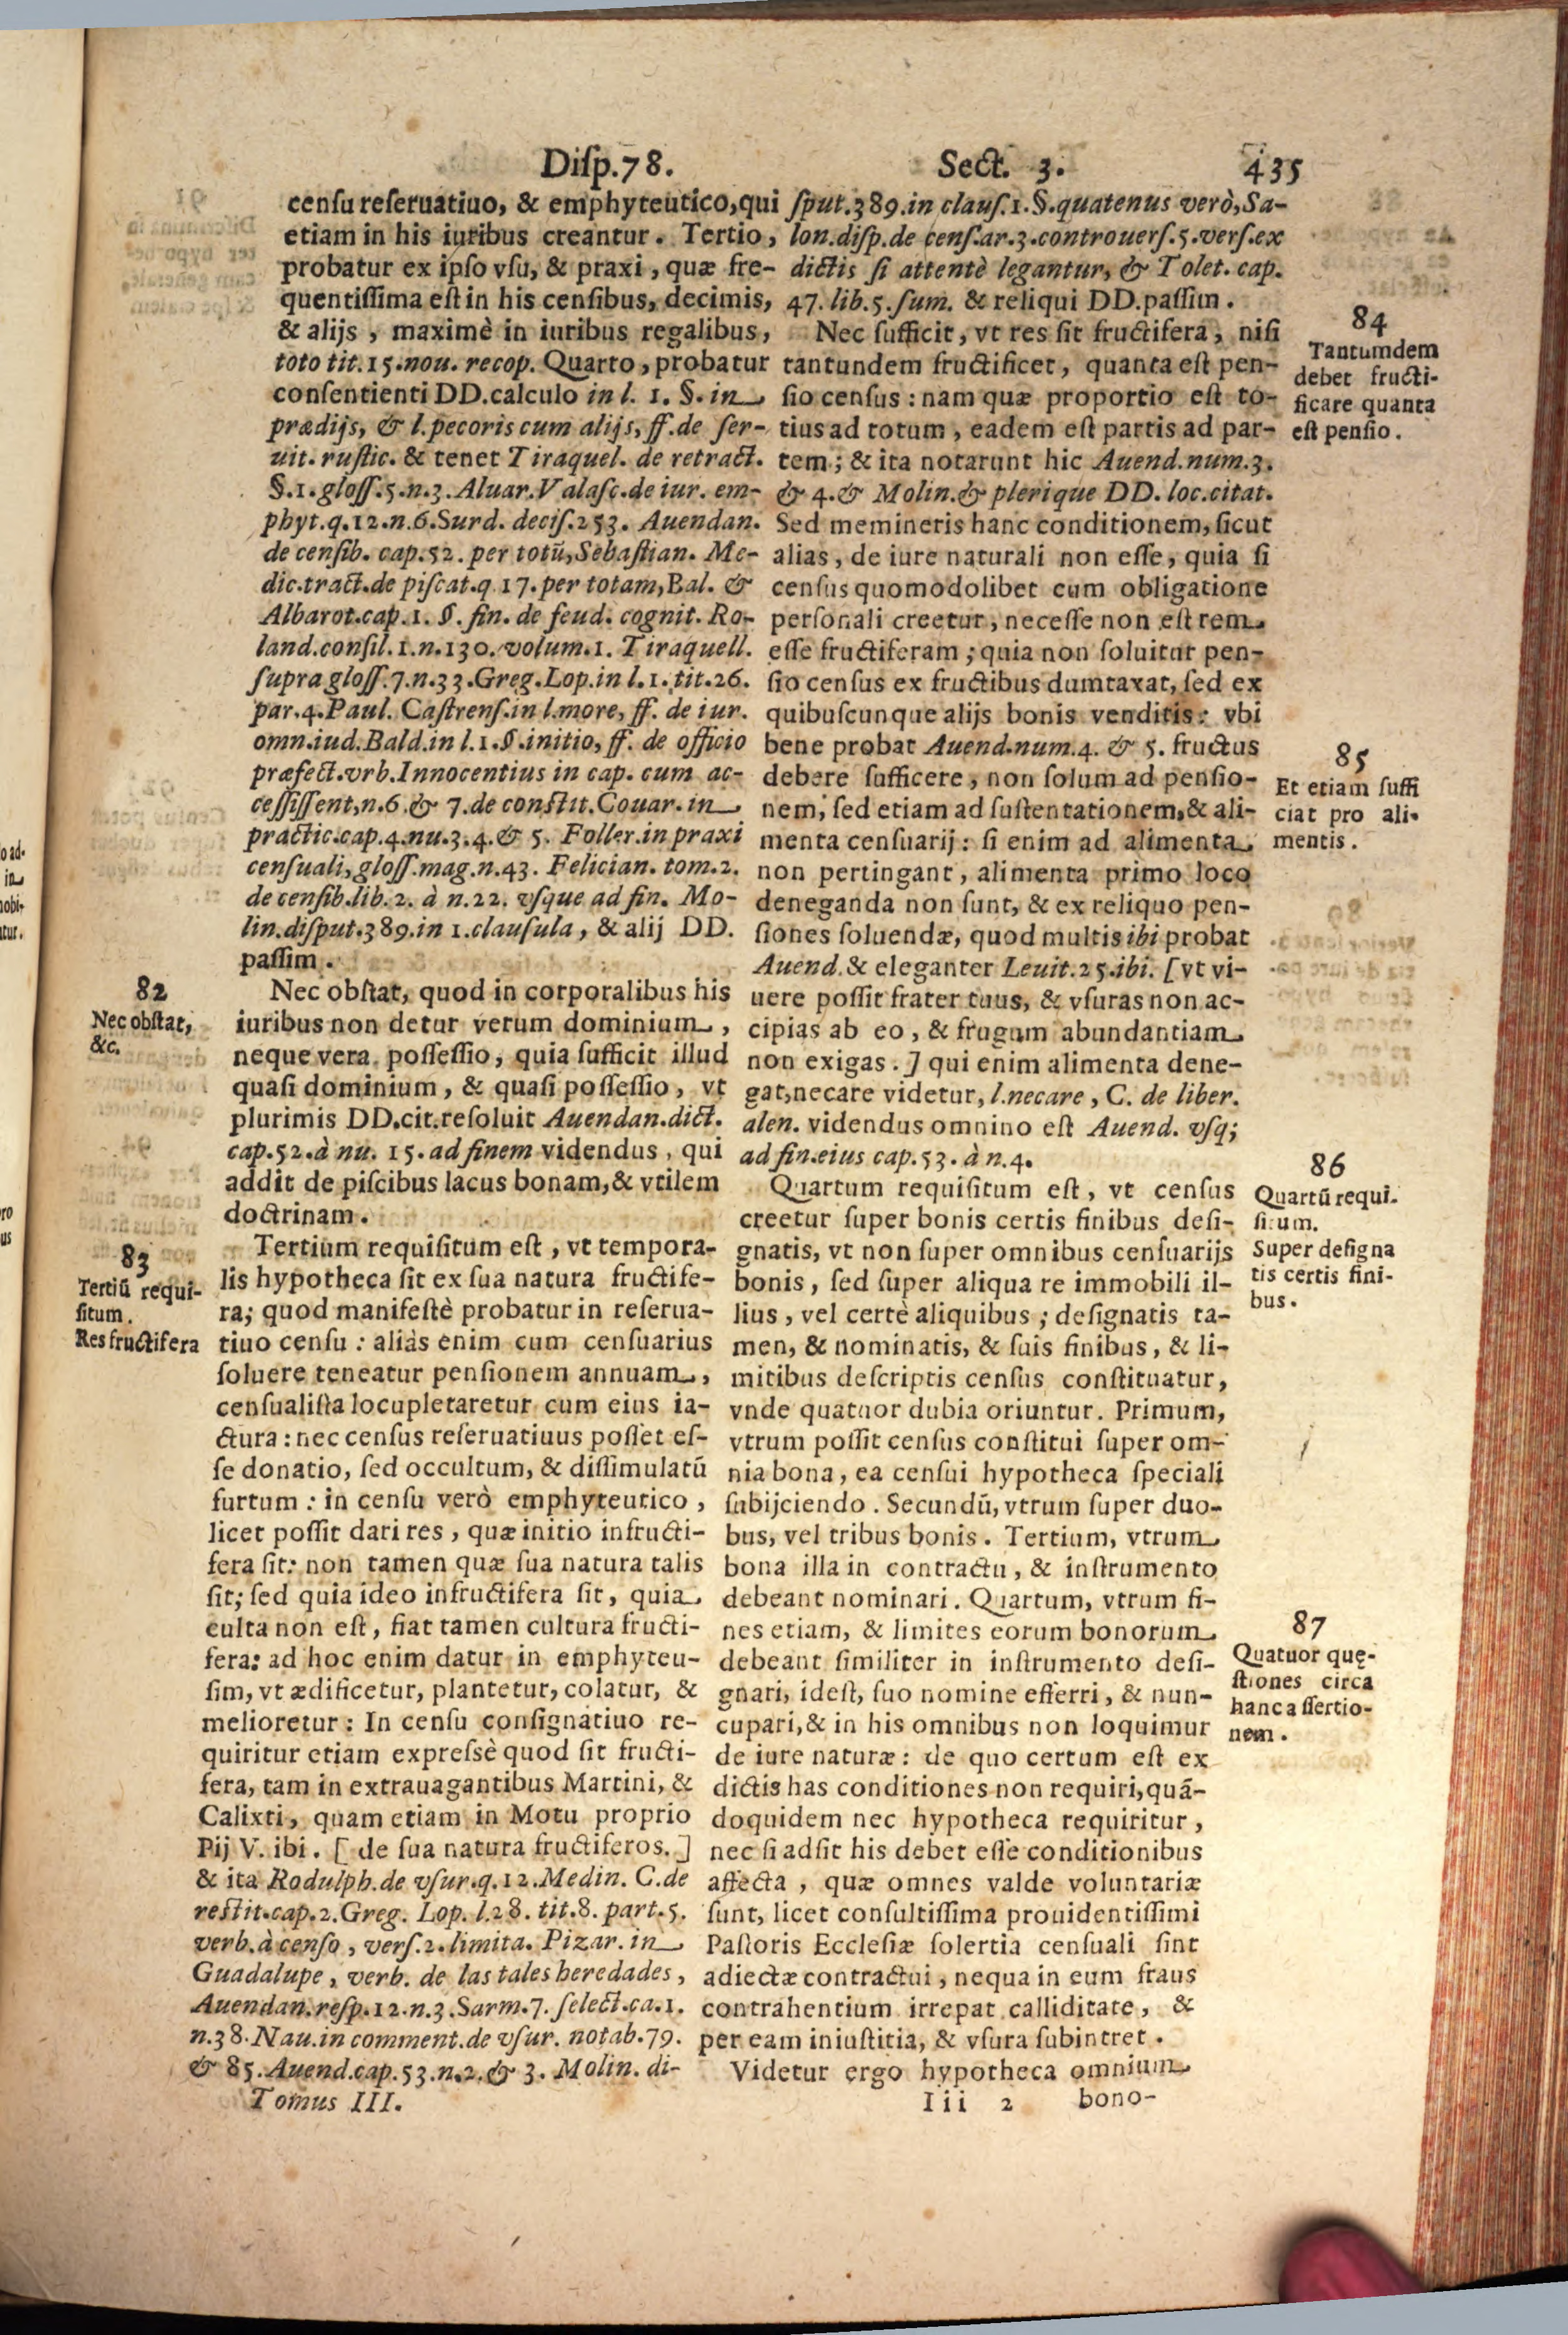 Disp.78. Sect. 3. 435
censu reseruatiuo, & emphyteutico, qui
etiam in his iuribus creantur. Tertio,
probatur ex ipso vsu, & praxi, quæ fre-
quentissima est in his censibus, decimis,
& alijs, maximè in iuribus regalibus,
toto tit.15.nou. recop. Quarto, probatur
consentienti DD.calculo in l. 1. §. in
prædijs, & l.pecoris cum alijs, ff.de ser-
uit. rustic. & tenet Tiraquel. de retract.
§.1.gloss.5.n.3.Aluar.Valasc.de iur. em-
phyt.q.12.n.6.Surd. decis.253. Auendan.
de censib. cap.52. per totũ, Sebastian. Me-
dic.tract.de piscat.q.17.per totam, Bal. &
Albarot.cap.1. §. fin. de feud. cognit. Ro-
land.consil.1.n.130.volum.1. Tiraquell.
supra gloss.7.n.33.Greg.Lop.in l.1.tit.26.
par.4.Paul. Castrens.in l.more, ff. de iur.
omn.iud.Bald.in l.1.§.initio, ff. de officio
præfect.vrb.Innocentius in cap. cum ac-
cessissent, n.6.& 7.de constit.Couar.in
practic.cap.4.nu.3.4.& 5. Foller.in praxi
censuali, gloss.mag.n.43. Felician. tom.2.
de censib.lib.2. à n.22. vsque ad fin. Mo-
lin.disput.389.in 1.clausula, & alij DD.
passim.
82
Nec obstat,
&c.
Nec obstat, quod in corporalibus his
iuribus non detur verum dominium,
neque vera possessio, quia sufficit illud
quasi dominium, & quasi possessio, vt
plurimis DD.cit.resoluit Auendan.dict.
cap.52.à nu. 15.ad finem videndus, qui
addit de piscibus lacus bonam, & vtilem
doctrinam.
83
Tertiũ requi-
situm.
Res fructifera
Tertium requisitum est, vt tempora-
lis hypotheca sit ex sua natura fructife-
ra; quod manifestè probatur in reserua-
tiuo censu: aliàs enim cum censuarius
soluere teneatur pensionem annuam,
censualista locupletaretur cum eius ia-
ctura: nec census reseruatiuus posset es-
se donatio, sed occultum, & dissimulatũ
furtum: in censu verò emphyteutico,
licet possit dari res, quæ initio infructi-
fera sit: non tamen quæ sua natura talis
sit; sed quia ideo infructifera sit, quia
culta non est, fiat tamen cultura fructi-
fera: ad hoc enim datur in emphyteu-
sim, vt ædificetur, plantetur, colatur, &
melioretur: In censu consignatiuo re-
quiritur etiam expressè quod sit fructi-
fera, tam in extrauagantibus Martini, &
Calixti, quam etiam in Motu proprio
Pij V. ibi. [ de sua natura fructiferos. ]
& ita Rodulph.de vsur.q.12.Medin. C.de
restit.cap.2.Greg. Lop. l.28. tit.8. part.5.
verb.à censo, vers.2.limita. Pizar. in
Guadalupe, verb. de las tales heredades,
Auendan.resp.12.n.3.Sarm.7. select.ca.1.
n.38.Nau.in comment.de vsur. notab.79.
& 85.Auend.cap.53.n.2.& 3. Molin. di-
Tomus III.
sput.389.in claus.1.§.quatenus verò, Sa-
lon.disp.de cens.ar.3.controuers.5.vers.ex
dictis si attentè legantur, & Tolet. cap.
47. lib.5.sum. & reliqui DD.passim.
84
Tantumdem
debet fructi-
ficare quanta
est pensio.
Nec sufficit, vt res sit fructifera, nisi
tantundem fructificet, quanta est pen-
sio census: nam quæ proportio est to-
tius ad totum, eadem est partis ad par-
tem; & ita notarunt hic Auend.num.3.
& 4.& Molin.& plerique DD. loc.citat.
Sed memineris hanc conditionem, sicut
alias, de iure naturali non esse, quia si
census quomodolibet cum obligatione
personali creetur, necesse non est rem
esse fructiferam; quia non soluitur pen-
sio census ex fructibus dumtaxat, sed ex
quibuscunque alijs bonis venditis: vbi
bene probat Auend.num.4. & 5. fructus
85
Et etiam suffi
ciat pro ali-
mentis.
debere sufficere, non solum ad pensio-
nem, sed etiam ad sustentationem, & ali-
menta censuarij: si enim ad alimenta
non pertingant, alimenta primo loco
deneganda non sunt, & ex reliquo pen-
siones soluendæ, quod multis ibi probat
Auend.& eleganter Leuit.25.ibi. [vt vi-
uere possit frater tuus, & vsuras non ac-
cipias ab eo, & frugum abundantiam
non exigas.] qui enim alimenta dene-
gat, necare videtur, l.necare, C. de liber.
alen. videndus omnino est Auend. vsq;
ad fin.eius cap.53. à n.4.
86
Quartũ requi-
situm.
Super designa
tis certis fini-
bus.
Quartum requisitum est, vt census
creetur super bonis certis finibus desi-
gnatis, vt non super omnibus censuarijs
bonis, sed super aliqua re immobili il-
lius, vel certè aliquibus; designatis ta-
men, & nominatis, & suis finibus, & li-
mitibus descriptis census constituatur,
vnde quatuor dubia oriuntur. Primum,
vtrum possit census constitui super om-
nia bona, ea censui hypotheca speciali
subijciendo. Secundũ, vtrum super duo-
bus, vel tribus bonis. Tertium, vtrum
bona illa in contractu, & instrumento
debeant nominari. Quartum, vtrum fi-
87
Quatuor quę-
stiones circa
hanc assertio-
nem.
nes etiam, & limites eorum bonorum
debeant similiter in instrumento desi-
gnari, idest, suo nomine efferri, & nun-
cupari, & in his omnibus non loquimur
de iure naturæ: de quo certum est ex
dictis has conditiones non requiri, quã-
doquidem nec hypotheca requiritur,
nec si adsit his debet esse conditionibus
affecta, quæ omnes valde voluntariæ
sunt, licet consultissima prouidentissimi
Pastoris Ecclesiæ solertia censuali sint
adiectæ contractui, nequa in eum fraus
contrahentium irrepat calliditate, &
per eam iniustitia, & vsura subintret.
Videtur ergo hypotheca omnium
Iii 2 bono-